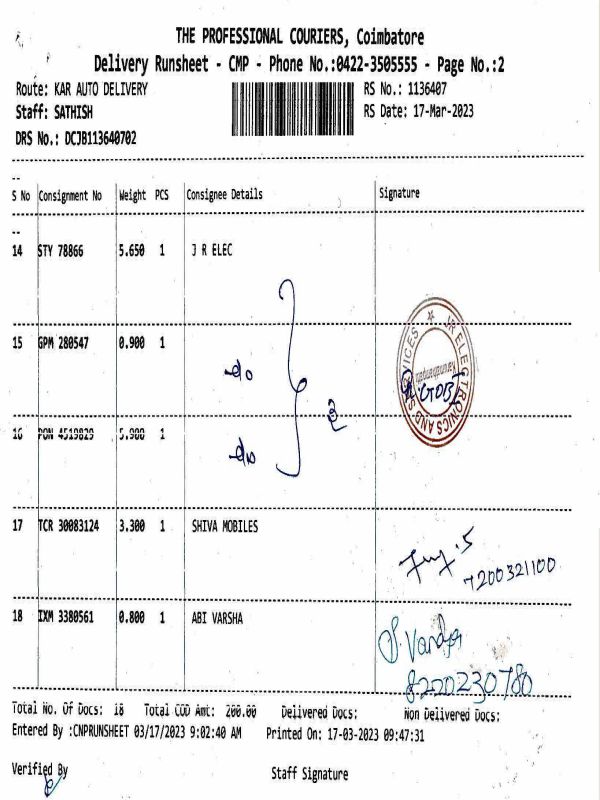 THE PROFESSIONAL COURIERS, Coimbatore
Delivery Runsheet - CMP - Phone No.:0422-3505555 - Page No.:2
Route: KAR AUTO DELIVERY RS No.: 1136407
Staff: SATHISH RS Date: 17-Mar-2023
DRS No.: DCJB113640702
S No Consignment No Weight PCS Consignee Details Signature
14 STY 78866 5.650 1 J R ELEC
15 GPM 280547 0.900 1
do
JR ELECTRONICS AND SERVICES
3
16 PON 4519829 5.900 1
do
17 TCR 30083124 3.300 1 SHIVA MOBILES
7200321100
18 IXM 3380561 0.800 1 ABI VARSHA
8220230780
Total No. Of Docs: 18 Total COD Amt: 200.00 Delivered Docs: Non Delivered Docs:
Entered By :CNPRUNSHEET 03/17/2023 9:02:40 AM Printed On: 17-03-2023 09:47:31
Verified By Staff Signature